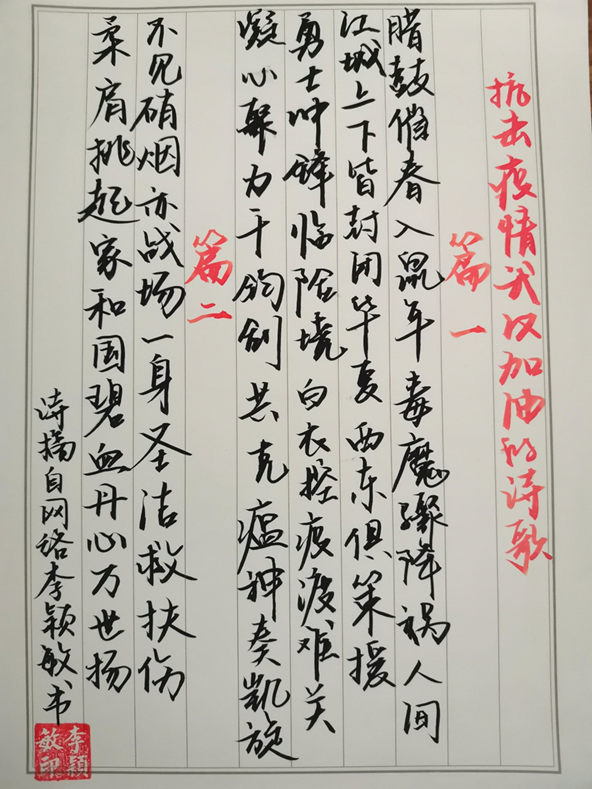 抗击疫情武汉加油的诗歌
篇一
腊鼓催春入鼠年毒魔骤降祸人间
江城上下皆封闭华夏西东俱策援
勇士冲锋临险境白衣控疫渡难关
凝心聚力千钧创共克瘟神奏凯旋
篇二
不见硝烟亦战场一身圣洁救扶伤
柔肩挑起家和国碧血丹心万世扬
诗摘自网络李颖敏书
李颖敏印